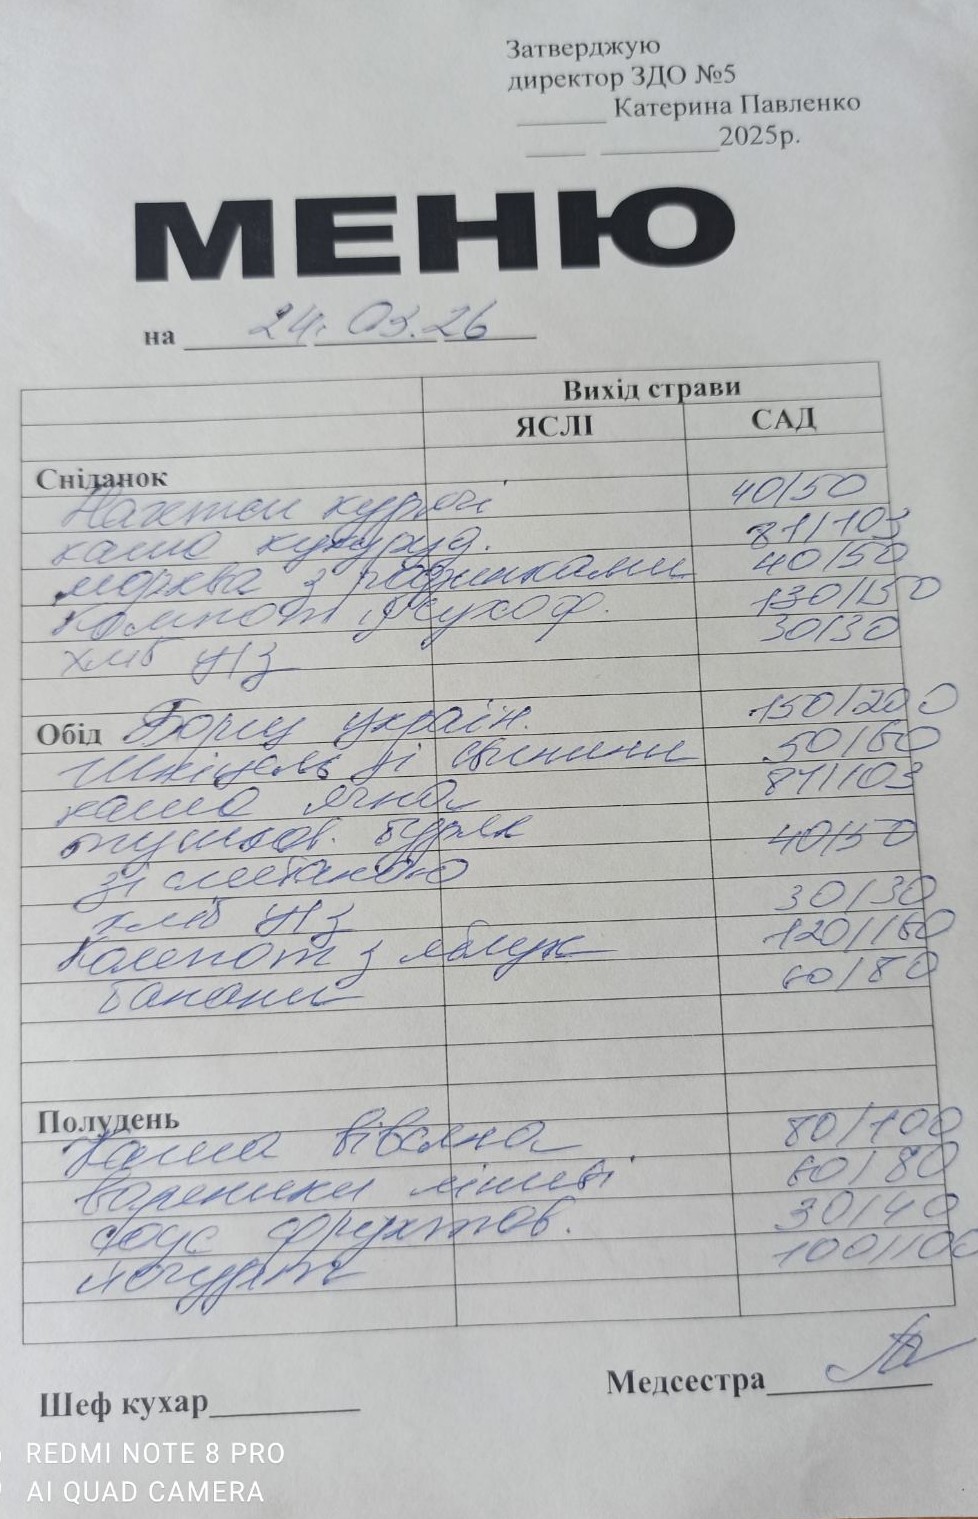 Затверджую
директор ЗДО №5
______ Катерина Павленко
____ ________2025р.
МЕНЮ
на 24.03.26
Вихід страви
ЯСЛІ САД
Сніданок
Нагетси курячі 40/50
каша кукурудз. 87/103
морква з родзинками 40/50
Компот із сухоф. 130/150
хліб ц/з 30/30
Обід Борщ україн. 150/200
шніцель зі свинини 50/60
каша ячна 87/103
тушков. буряк 40/50
зі сметаною
хліб ц/з 30/30
Компот з яблук 120/160
банани 60/80
Полудень
Каша вівсяна 80/100
вареники ліниві 60/80
соус фруктов. 30/40
йогурт 100/100
Шеф кухар__________ Медсестра__________
REDMI NOTE 8 PRO
AI QUAD CAMERA